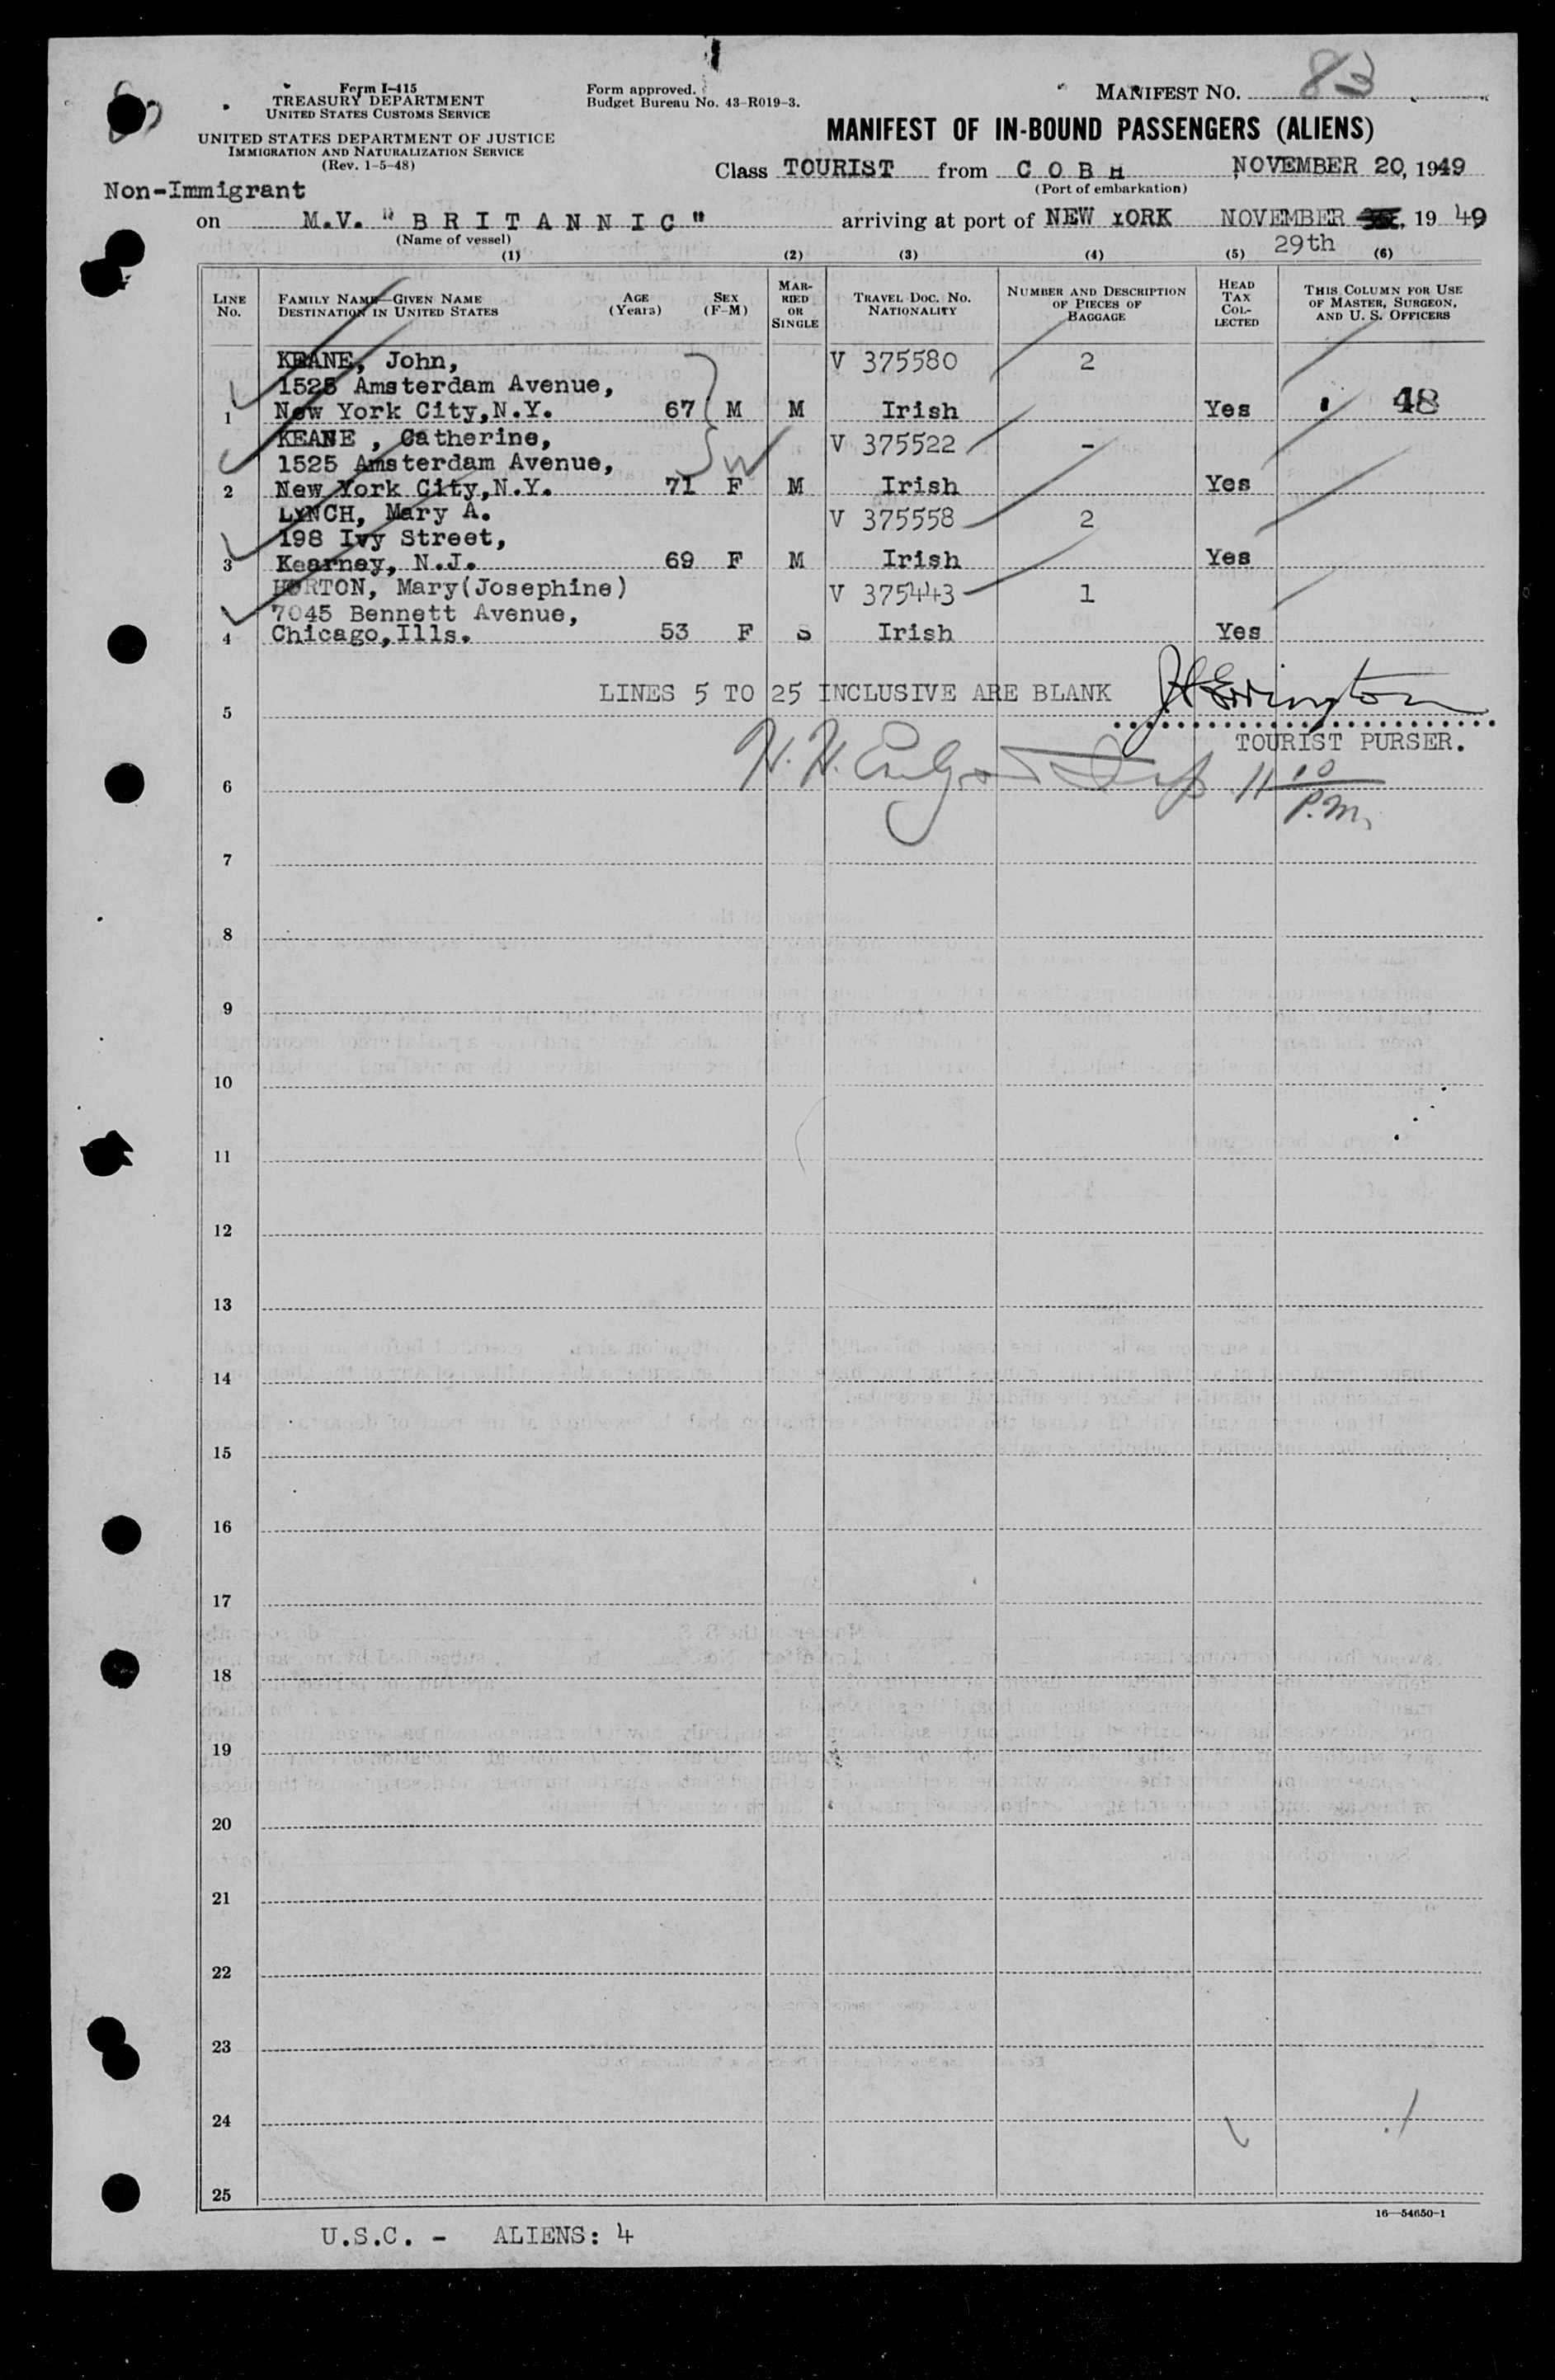 Form I-415
TREASURY DEPARTMENT
UNITED STATES CUSTOMS SERVICE
UNITED STATES DEPARTMENT OF JUSTICE
IMMIGRATION AND NATURALIZATION SERVICE
(Rev. 1-5-48)
Form approved.
Budget Bureau No. 43-R019-3.
MANIFEST NO. 83
MANIFEST OF IN-BOUND PASSENGERS (ALIENS)
Class TOURIST from C O B H NOVEMBER 20, 1949
(Port of embarkation)
Non-Immigrant
on M.V. "B R I T A N N I C" arriving at port of NEW YORK NOVEMBER 19 49
(Name of vessel) 29th
(1) (2) (3) (4) (5) (6)
LINE NO.
FAMILY NAME—GIVEN NAME
DESTINATION IN UNITED STATES
AGE (Years)
SEX (F-M)
MARRIED OR SINGLE
TRAVEL DOC. NO.
NATIONALITY
NUMBER AND DESCRIPTION OF PIECES OF BAGGAGE
HEAD TAX COLLECTED
THIS COLUMN FOR USE OF MASTER, SURGEON, AND U. S. OFFICERS
KEANE, John, V 375580 2
1525 Amsterdam Avenue,
1 New York City,N.Y. 67 M M Irish Yes 48
KEANE , Catherine, V 375522 -
1525 Amsterdam Avenue, W
2 New York City,N.Y. 71 F M Irish Yes
LYNCH, Mary A. V 375558 2
198 Ivy Street,
3 Kearney, N.J. 69 F M Irish Yes
HORTON, Mary(Josephine) V 375443 1
7045 Bennett Avenue,
4 Chicago,Ills. 53 F S Irish Yes
LINES 5 TO 25 INCLUSIVE ARE BLANK
5
TOURIST PURSER.
6 11 10 P.M.
7
8
9
10
11
12
13
14
15
16
17
18
19
20
21
22
23
24
25
16—54650-1
U.S.C. - ALIENS: 4